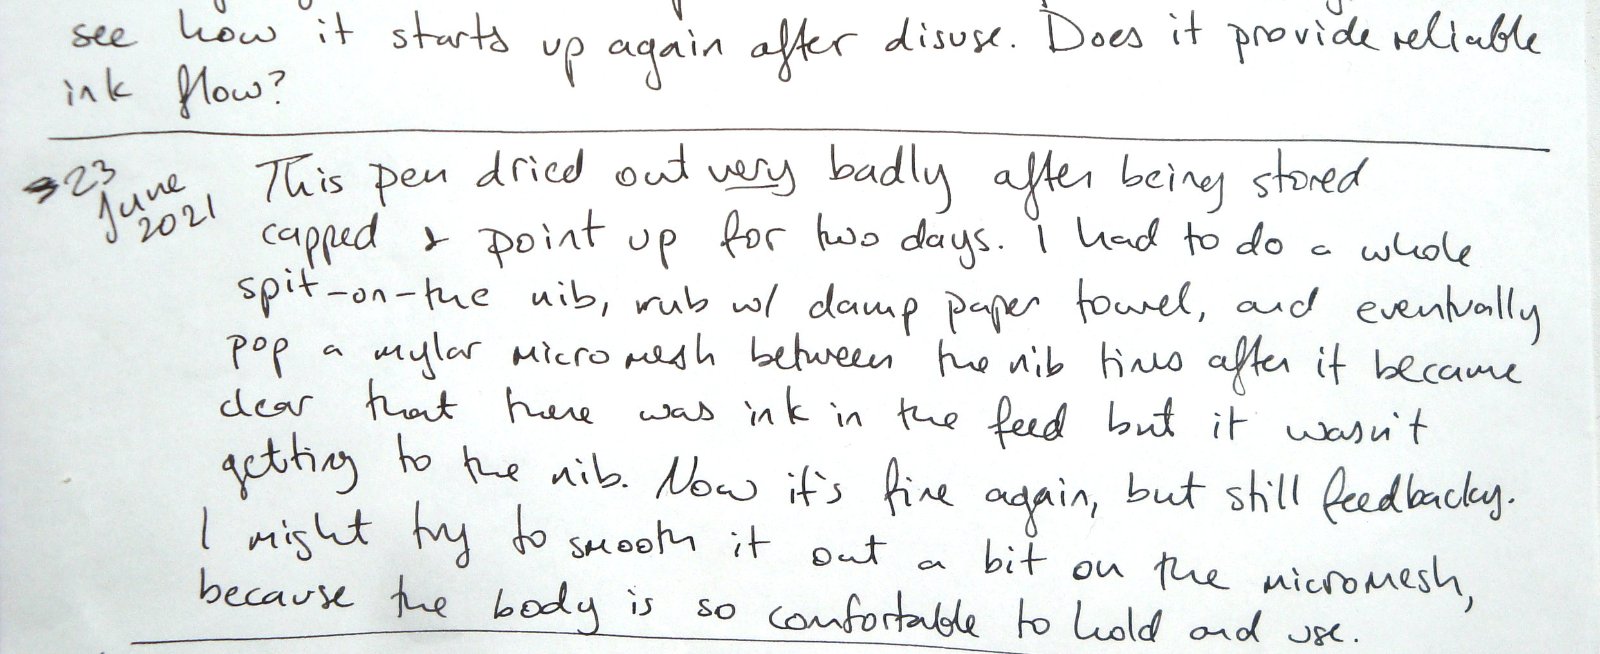 see how it starts up again after disuse. Does it provide reliable
ink flow?
→ 23 June 2021
This pen dried out very badly after being stored
capped & point up for two days. I had to do a whole
spit-on-the nib, rub w/ damp paper towel, and eventually
pop a mylar micromesh between the nib tines after it became
clear that there was ink in the feed but it wasn't
getting to the nib. Now it's fine again, but still feedbacky.
I might try to smooth it out a bit on the micromesh,
because the body is so comfortable to hold and use.